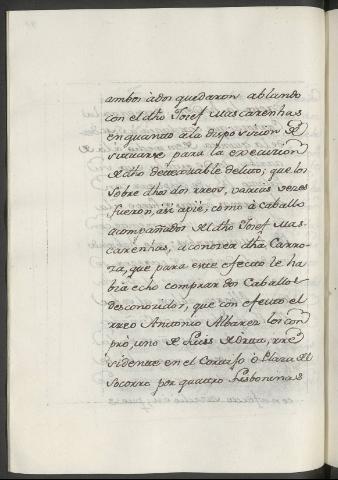 ambos ados quedaron ablando
con el dho Josef Mascarenhas
en quanto à la disposision de
situarse para la execusion
de dho detestable delito; que los
sobre dhos dos rreos, varias veses
fueron, asi apie, como à caballo
acompañados del dho Josef Mas-
carenhas, aconoser dha Carro-
za, que para este efecto le ha
bia echo comprar dos Caballos
desconosidos, que con efecto el
rreo Antonio Albarez los com
prò, uno de Luis de Orta, rre
sidente en el Cortiso ò Plaza del
Socorro por quattro Lisboninas